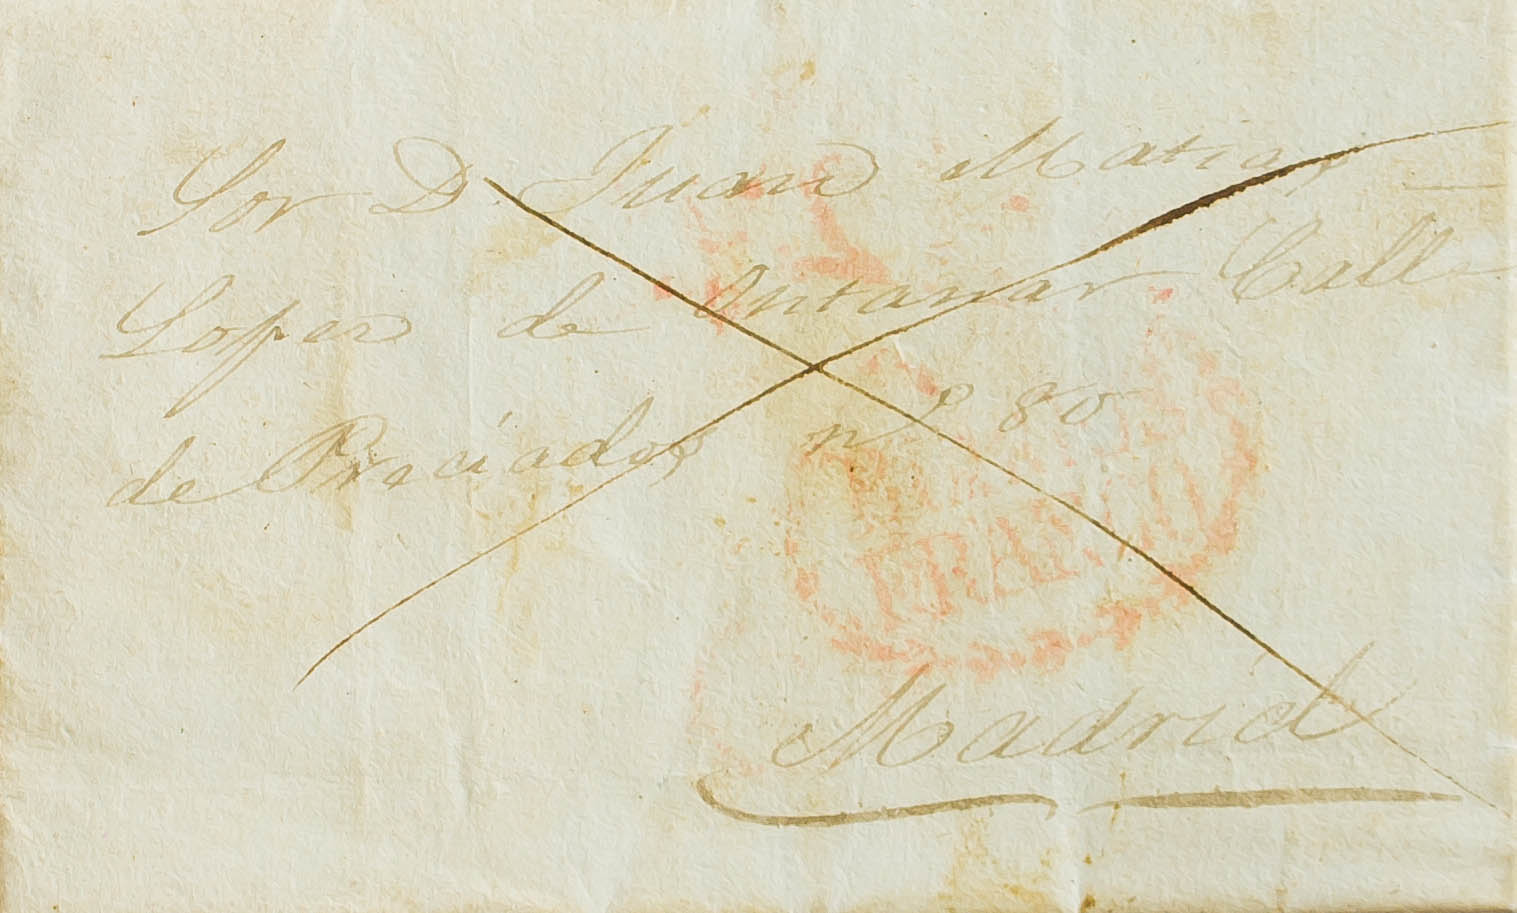 Sor D. Juan Matias
Lopez de Ontanar Calle
de Preciados nº 80
FRANCO
Madrid